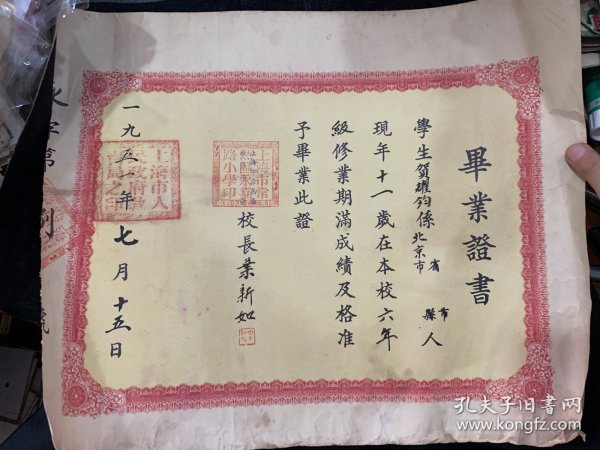 畢業證書
學生賀耀鈞係北京市省縣市人
現年十一歲在本校六年
級修業期滿成績及格准
予畢業此證
校長葉新如
一九五一年七月十五日
上海市人
孔夫子旧书网
www.kongfz.com